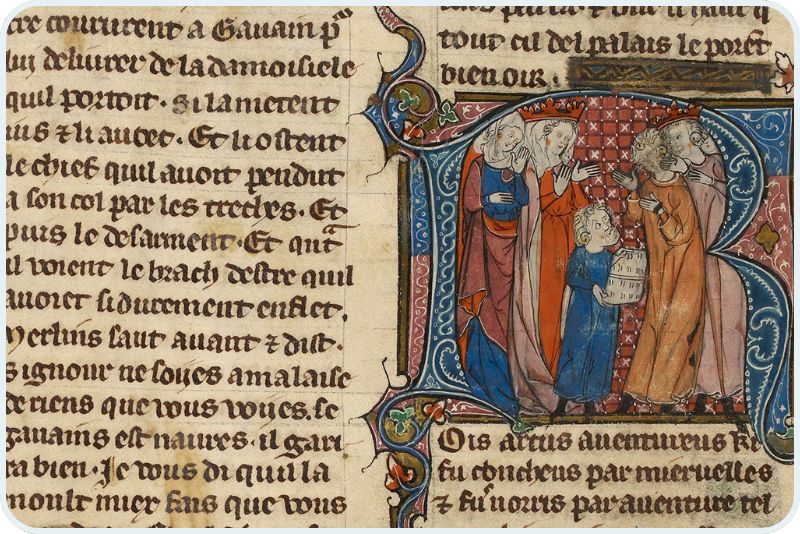 tre coururent a Gauain p
lui deliurer de la damoisiele
quil portoit. si la metent
ius ⁊ li aucer. Et li ostent
le chief quil auoit pendut
a son col par les treches. Et
puis le desarment. Et q̃nt
il voient le brach destre quil
auoit si durement enflet.
Merlins saut auant ⁊ dist.
Signour ne soyes a malaise
de riens que vous voyes. se
gauains est naures. il gari
ra bien. Je vous di quil la
moult mier fais que vous
tout cil del palais le porẽt
bien oir.
Rois artus auentureus ki
fu concheus par mieruelles
⁊ fu norris par auenture tel